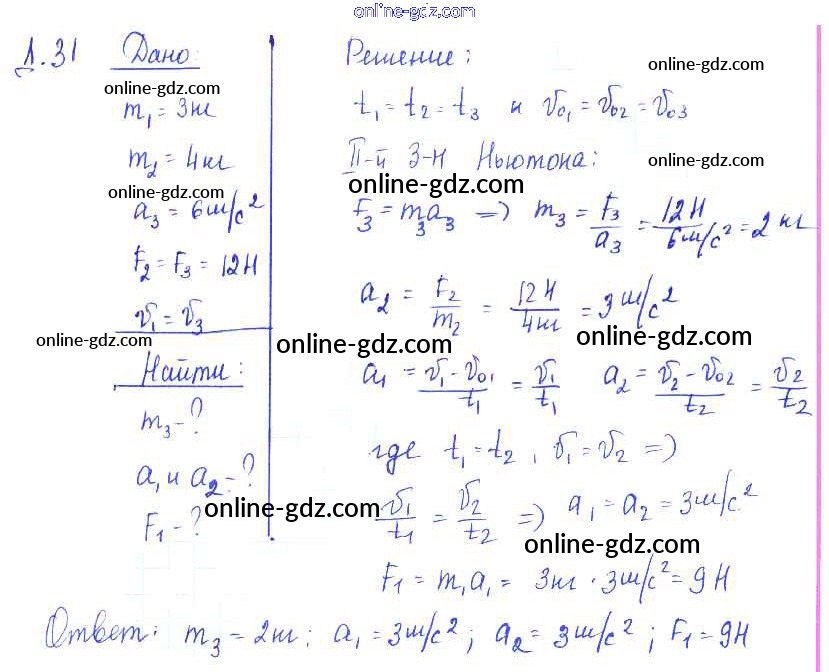 online-gdz.com
Д.31 Дано:
online-gdz.com
m₁ = 3кг
m₂ = 4кг
online-gdz.com
a₃ = 6м/с²
F₂ = F₃ = 12Н
v₁ = v₃
online-gdz.com
Найти:
m₃ - ?
a₁ и a₂ - ?
F₁ - ?
Решение:
online-gdz.com
t₁ = t₂ = t₃ и v₀₁ = v₀₂ = v₀₃
II-й З-н Ньютона:
online-gdz.com
online-gdz.com
F₃ = m₃a₃ => m₃ = F₃/a₃ = 12Н/6м/с² = 2кг
a₂ = F₂/m₂ = 12Н/4кг = 3м/с²
online-gdz.com
online-gdz.com
a₁ = v₁ - v₀₁/t₁ = v₁/t₁ a₂ = v₂ - v₀₂/t₂ = v₂/t₂
где t₁ = t₂, v₁ = v₂ =>
v₁/t₁ = v₂/t₂ => a₁ = a₂ = 3м/с²
online-gdz.com
online-gdz.com
F₁ = m₁a₁ = 3кг · 3м/с² = 9Н
Ответ: m₃ = 2кг; a₁ = 3м/с²; a₂ = 3м/с²; F₁ = 9Н